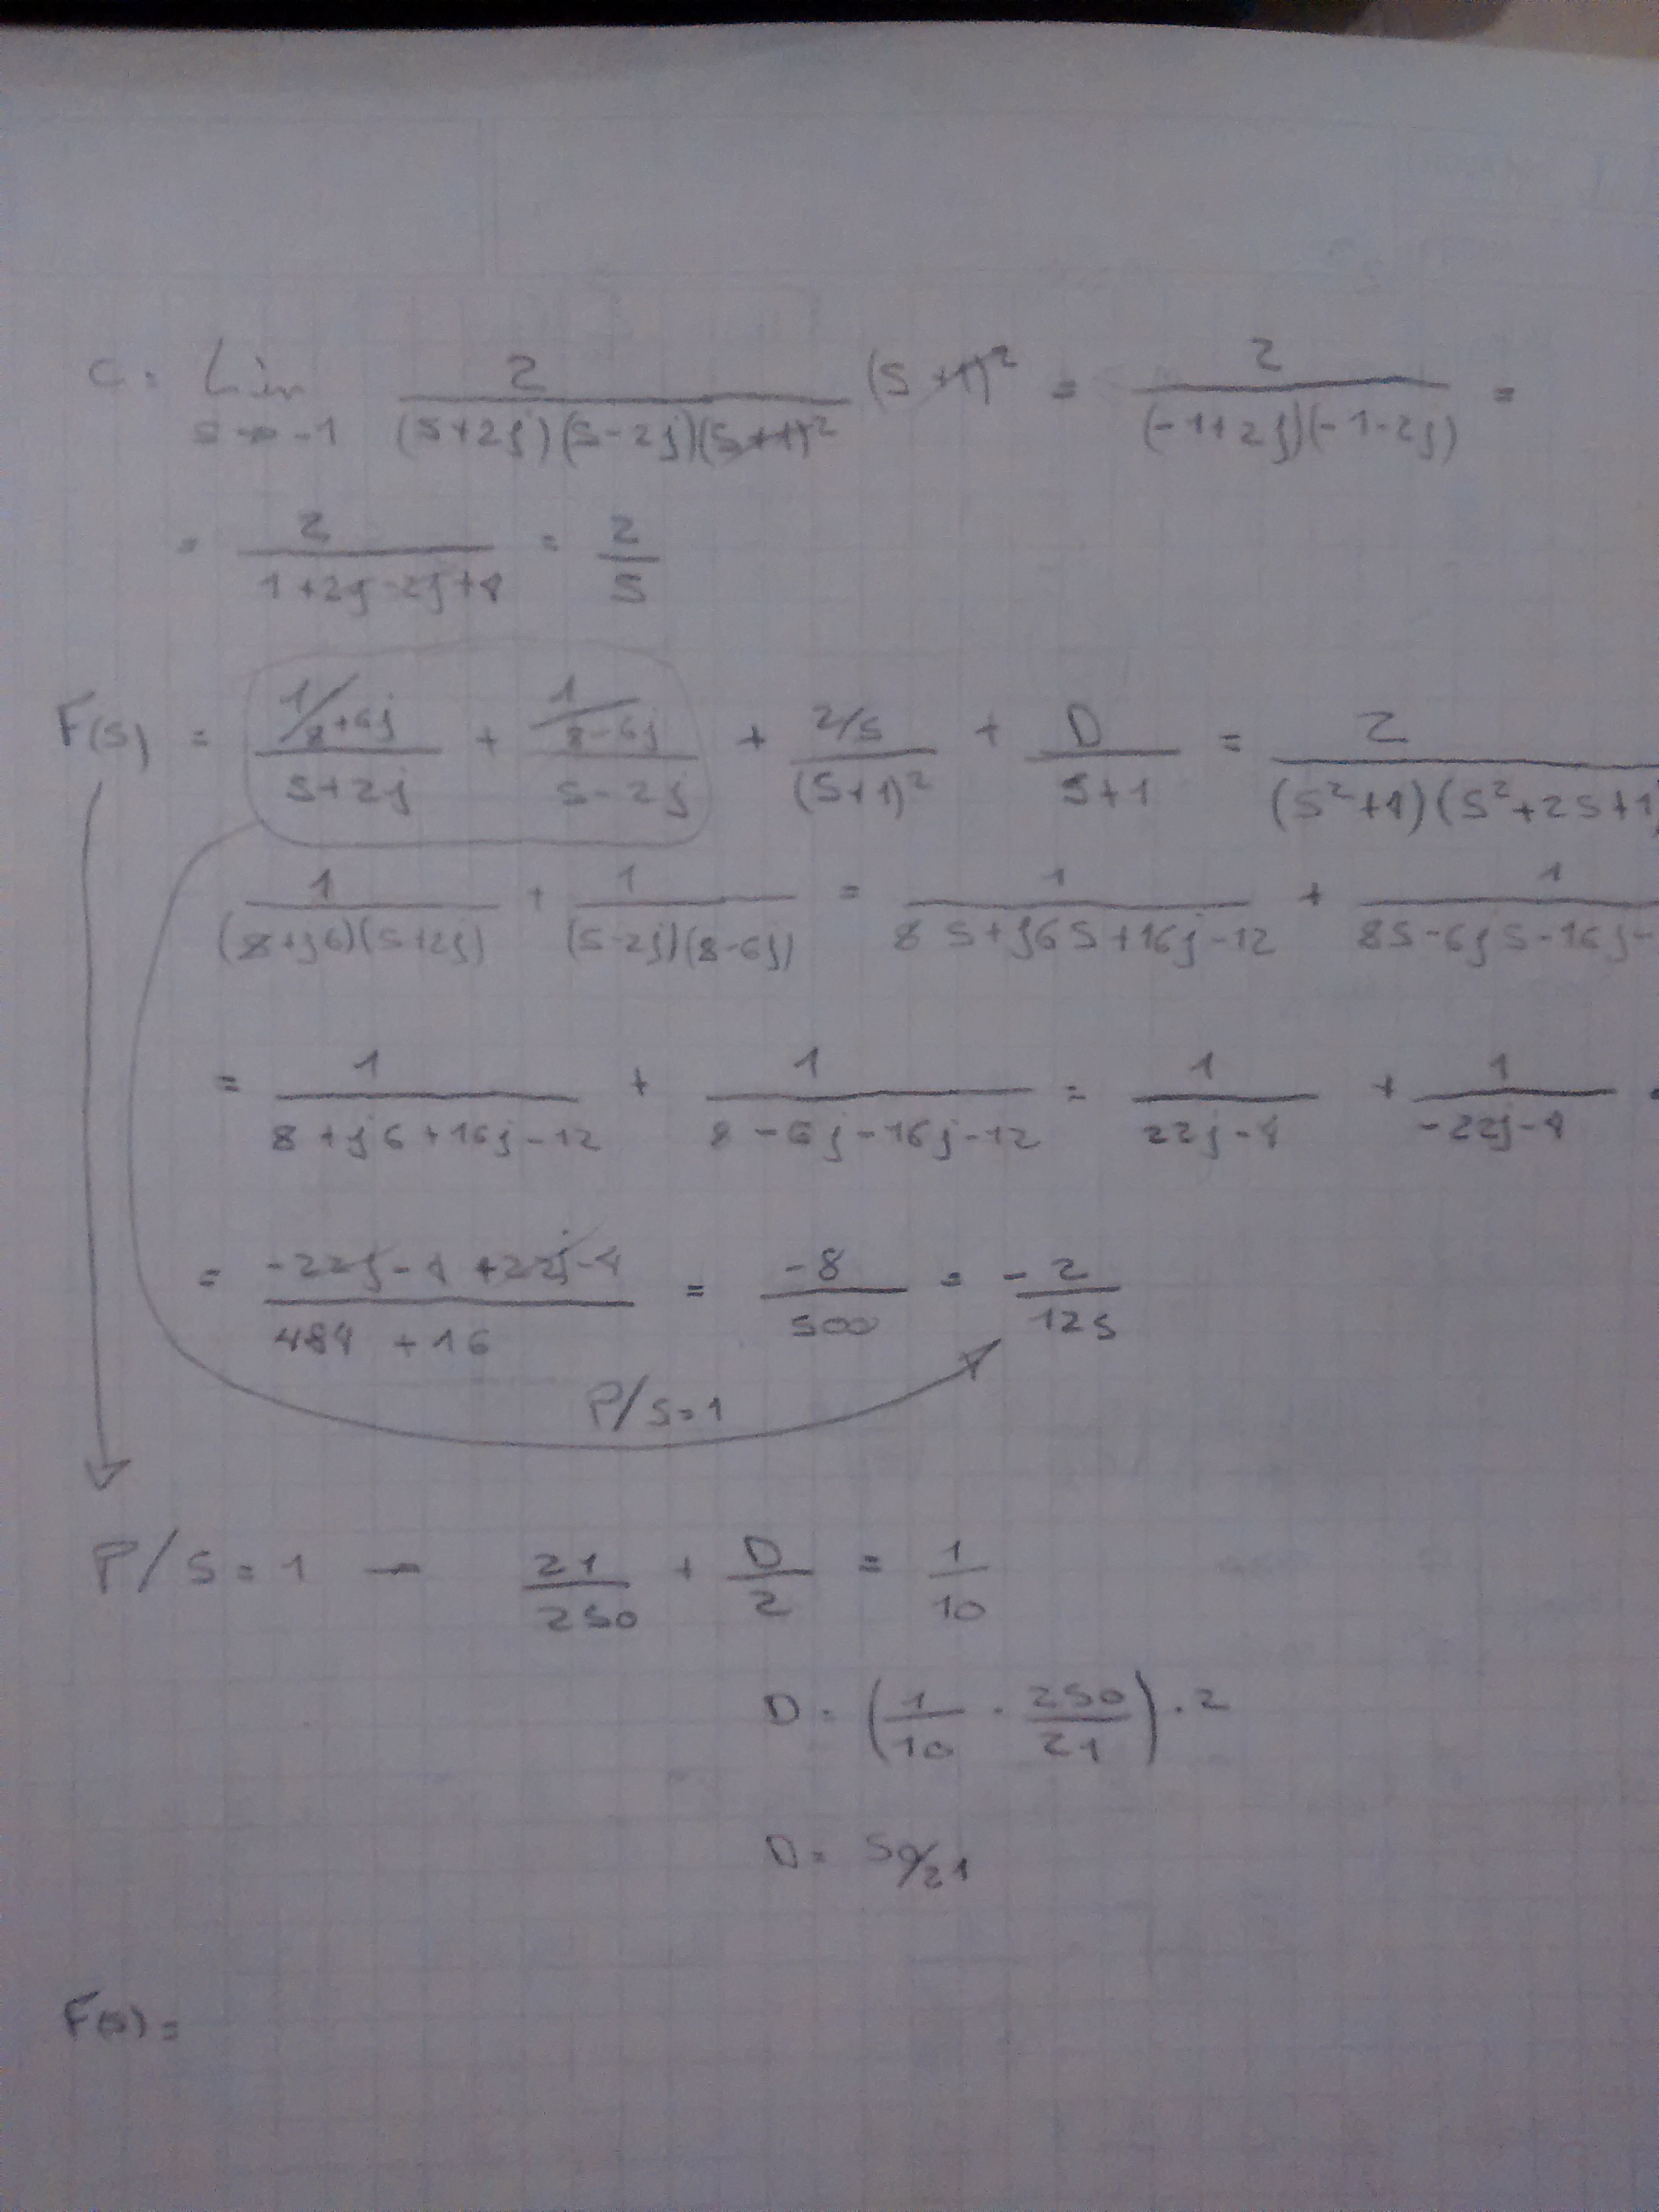 C = Lim s→-1 2/((s+2j)(s-2j)(s+1)²) (s+1)² = 2/((-1+2j)(-1-2j)) =
= 2/(1+2j-2j+4) = 2/5
F(s) = (1/8+6j)/(s+2j) + (1/8-6j)/(s-2j) + (2/5)/(s+1)² + D/(s+1) = 2/((s²+4)(s²+2s+1)
1/((8+j6)(s+2j)) + 1/((s-2j)(8-6j)) = 1/(8s+j6s+16j-12) + 1/(8s-6js-16j-
= 1/(8+j6+16j-12) + 1/(8-6j-16j-12) = 1/(22j-4) + 1/(-22j-4) =
= (-22j-4+22j-4)/(484+16) = -8/500 = -2/125
P/s=1
P/s=1 — 21/250 + D/2 = 1/10
D = (1/10 · 250/21) · 2
D = 50/21
F(s) =